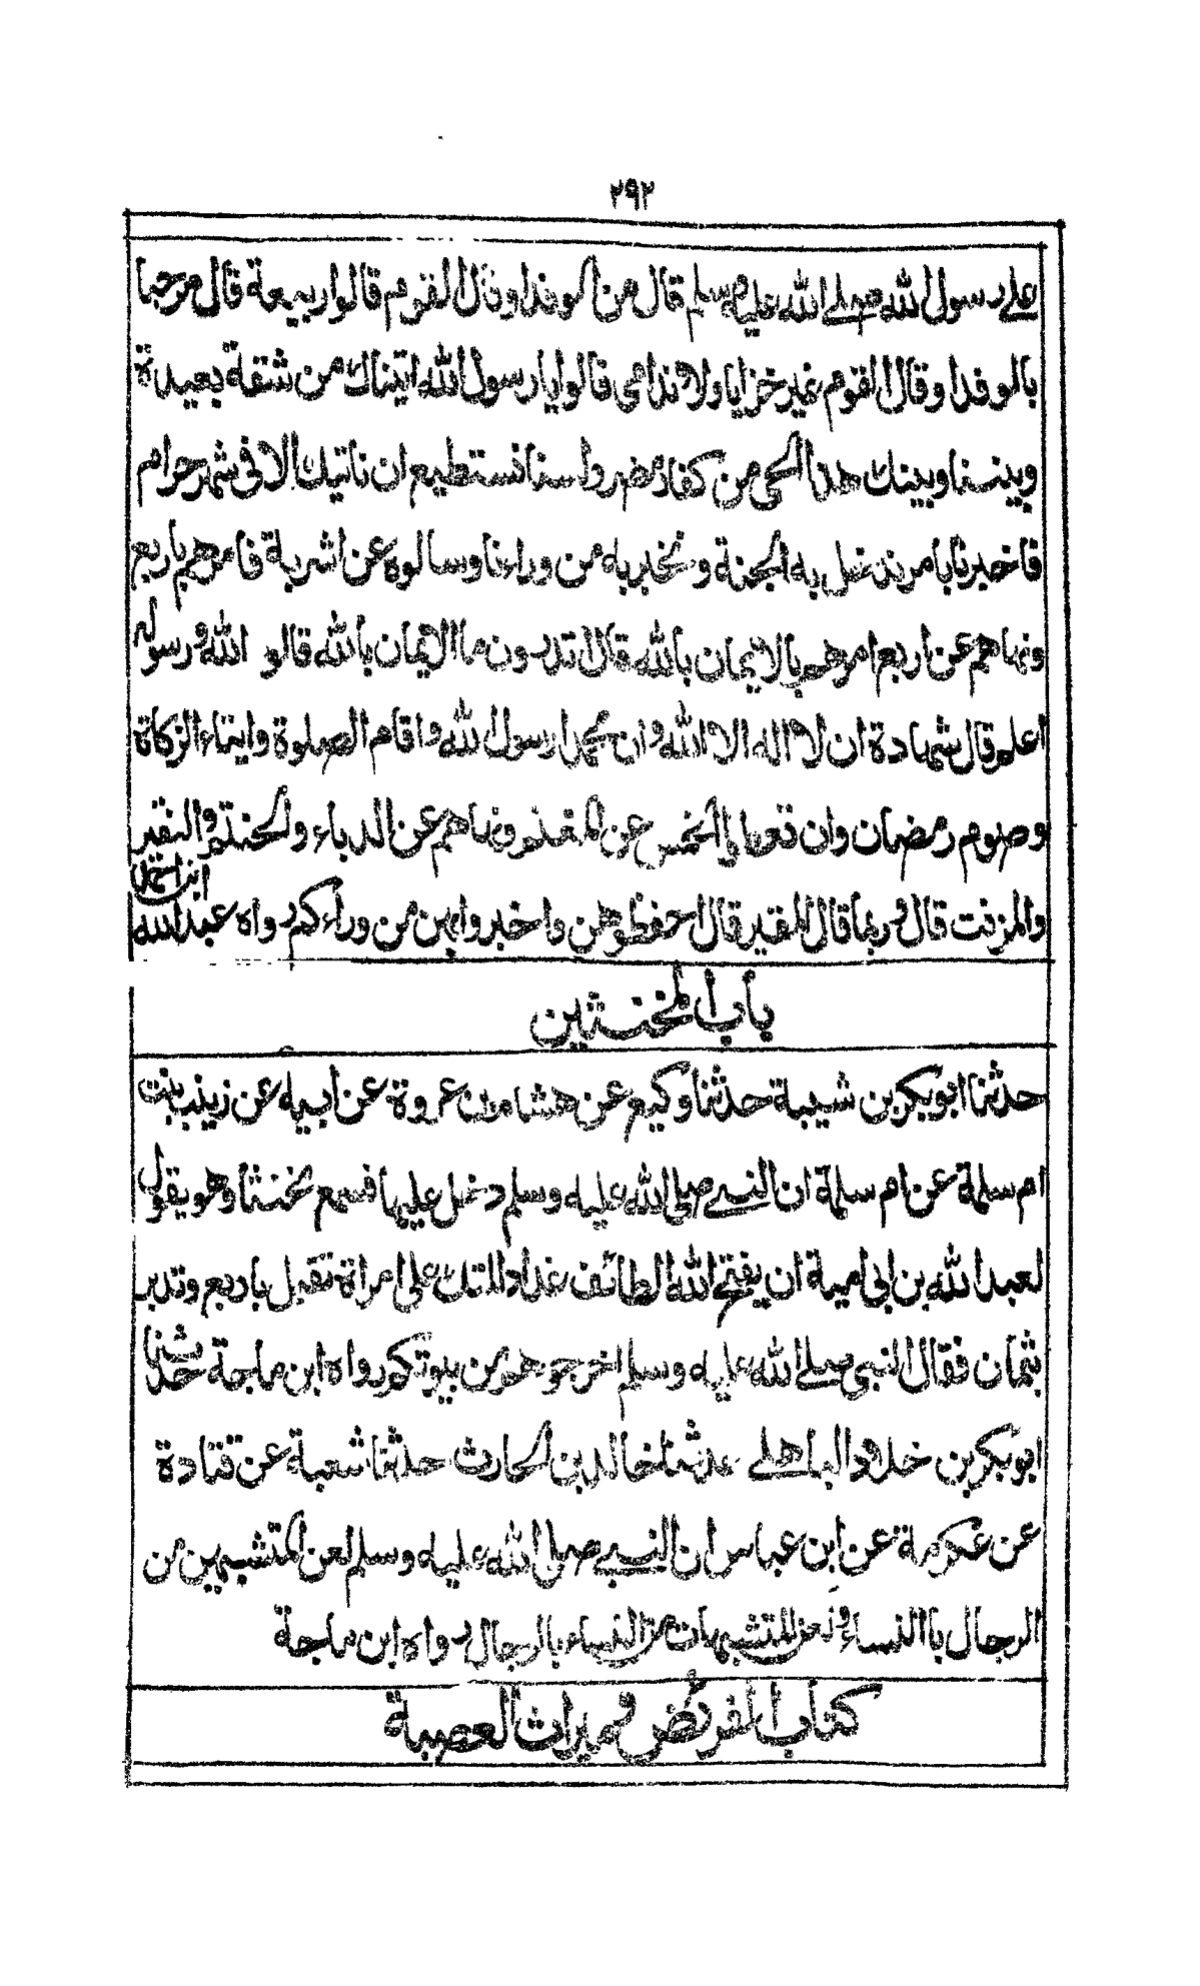 ٢٩٢
على رسول الله صلى الله عليه وسلم قال من الوفد او قال القوم قالوا ربيعة قال مرحبا
بالوفد او قال القوم غير خزايا ولا ندامى قالوا يا رسول الله اتيناك من شقة بعيدة
وبيننا وبينك هذا الحى من كفار مضر ولسنا نستطيع ان ناتيك الا فى شهر حرام
فاخبرنا بامر ندخل به الجنة و نخبر به من وراءنا وسالوه عن اشربة فامرهم باربع
ونهاهم عن اربع امرهم بالايمان بالله قال تدرون ما الايمان بالله قالو الله و رسوله
اعلم قال شهادة ان لا اله الا الله وان محمدا رسول الله واقام الصلوة وايتاء الزكاة
وصوم رمضان وان تعطوا الخمس عن المغنم ونهاهم عن الدباء والحنتم والنقير
والمزفت قال وربما قال المقير قال احفظوهن واخبروا بهن من وراءكم رواه عبد الله
باب المخنثين
حدثنا ابو بكر بن شيبة حدثنا وكيع عن هشام بن عروة عن ابيه عن زينب بنت
ام سلمة عن ام سلمة ان النبى صلى الله عليه وسلم دخل عليها فسمع مخنثا وهو يقول
لعبد الله بن ابى امية ان يفتح الله الطائف غدا دللتك على امراة تقبل باربع وتدبر
بثمان فقال النبى صلى الله عليه وسلم اخرجوهم من بيوتكم رواه ابن ماجة حدثنا
ابو بكر بن خلاد الباهلى حدثنا خالد بن الحارث حدثنا شعبة عن قتادة
عن عكرمة عن ابن عباس ان النبى صلى الله عليه وسلم لعن المتشبهين من
الرجال باالنساء ولعن المتشبهات من النساء بالرجال رواه ابن ماجة
كتاب الفرائض فى ميراث العصبة